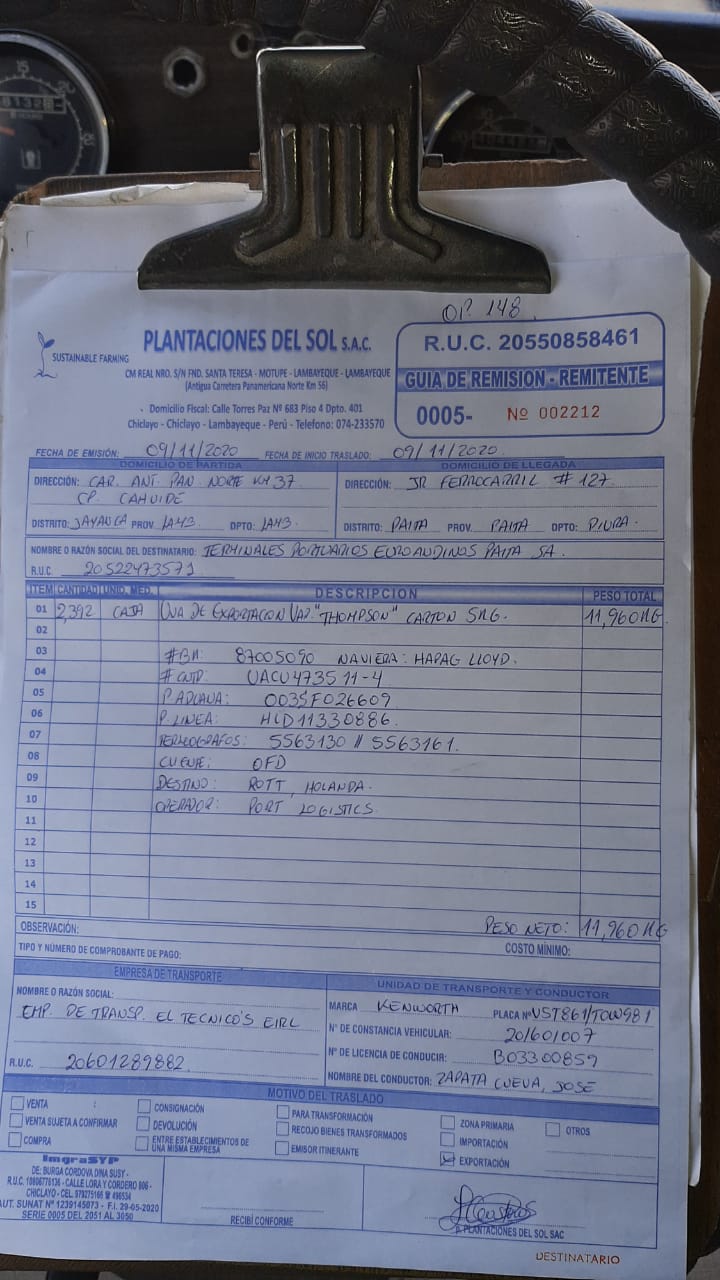 OP. 148
PLANTACIONES DEL SOL S.A.C.
SUSTAINABLE FARMING
CM REAL NRO. S/N FND. SANTA TERESA - MOTUPE - LAMBAYEQUE - LAMBAYEQUE
(Antigua Carretera Panamericana Norte Km 56)
Domicilio Fiscal: Calle Torres Paz Nº 683 Piso 4 Dpto. 401
Chiclayo - Chiclayo - Lambayeque - Perú - Telefono: 074-233570
R.U.C. 20550858461
GUIA DE REMISION - REMITENTE
0005- Nº 002212
FECHA DE EMISIÓN: 09/11/2020 FECHA DE INICIO TRASLADO: 09/11/2020
DOMICILIO DE PARTIDA DOMICILIO DE LLEGADA
DIRECCIÓN: CAR. ANT. PAN. NORTE KM 37 DIRECCIÓN: JR FERROCARRIL # 127
CP. CAHUIDE
DISTRITO: JAYANCA PROV. LAMB. DPTO: LAMB. DISTRITO: PAITA PROV. PAITA DPTO: PIURA.
NOMBRE O RAZÓN SOCIAL DEL DESTINATARIO: TERMINALES PORTUARIOS EUROANDINOS PAITA SA.
R.U.C. 20522473571
ITEM CANTIDAD UNID. MED. DESCRIPCION PESO TOTAL
01 2,392 CAJA UVA DE EXPORTACION VAR. "THOMPSON" CARTON 5KG. 11,960KG.
02
03 #BK: 87005090 NAVIERA: HAPAG LLOYD.
04 #CNTD: UACU 4735 11-4
05 P. ADUANA: 0035F026609
06 P. LINEA: HLD11330886.
07 TERMOGRAFOS: 5563130 // 5563161.
08 CLIENTE: OFD
09 DESTINO: ROTT, HOLANDA.
10 OPERADOR: PORT LOGISTICS
11
12
13
14
15
OBSERVACIÓN: PESO NETO: 11,960KG
TIPO Y NÚMERO DE COMPROBANTE DE PAGO: COSTO MÍNIMO:
EMPRESA DE TRANSPORTE UNIDAD DE TRANSPORTE Y CONDUCTOR
NOMBRE O RAZÓN SOCIAL: MARCA KENWORTH PLACA Nº VST861/TOW981
EMP. DE TRANSP. EL TECNICO'S EIRL Nº DE CONSTANCIA VEHICULAR: 201601007
Nº DE LICENCIA DE CONDUCIR: B03300859
R.U.C. 20601289882 NOMBRE DEL CONDUCTOR: ZAPATA CUEVA, JOSE
MOTIVO DEL TRASLADO
VENTA CONSIGNACIÓN PARA TRANSFORMACIÓN ZONA PRIMARIA OTROS
VENTA SUJETA A CONFIRMAR DEVOLUCIÓN RECOJO BIENES TRANSFORMADOS IMPORTACIÓN
COMPRA ENTRE ESTABLECIMIENTOS DE UNA MISMA EMPRESA EMISOR ITINERANTE EXPORTACIÓN
ImgraSYP
DE: BURGA CORDOVA DINA SUSY -
R.U.C. 10806776136 - CALLE LORA Y CORDERO 806 -
CHICLAYO - CEL. 979275166 ☎ 496534
AUT. SUNAT Nº 1239145073 - F.I. 29-05-2020
SERIE 0005 DEL 2051 AL 3050
RECIBÍ CONFORME
P. PLANTACIONES DEL SOL SAC
DESTINATARIO